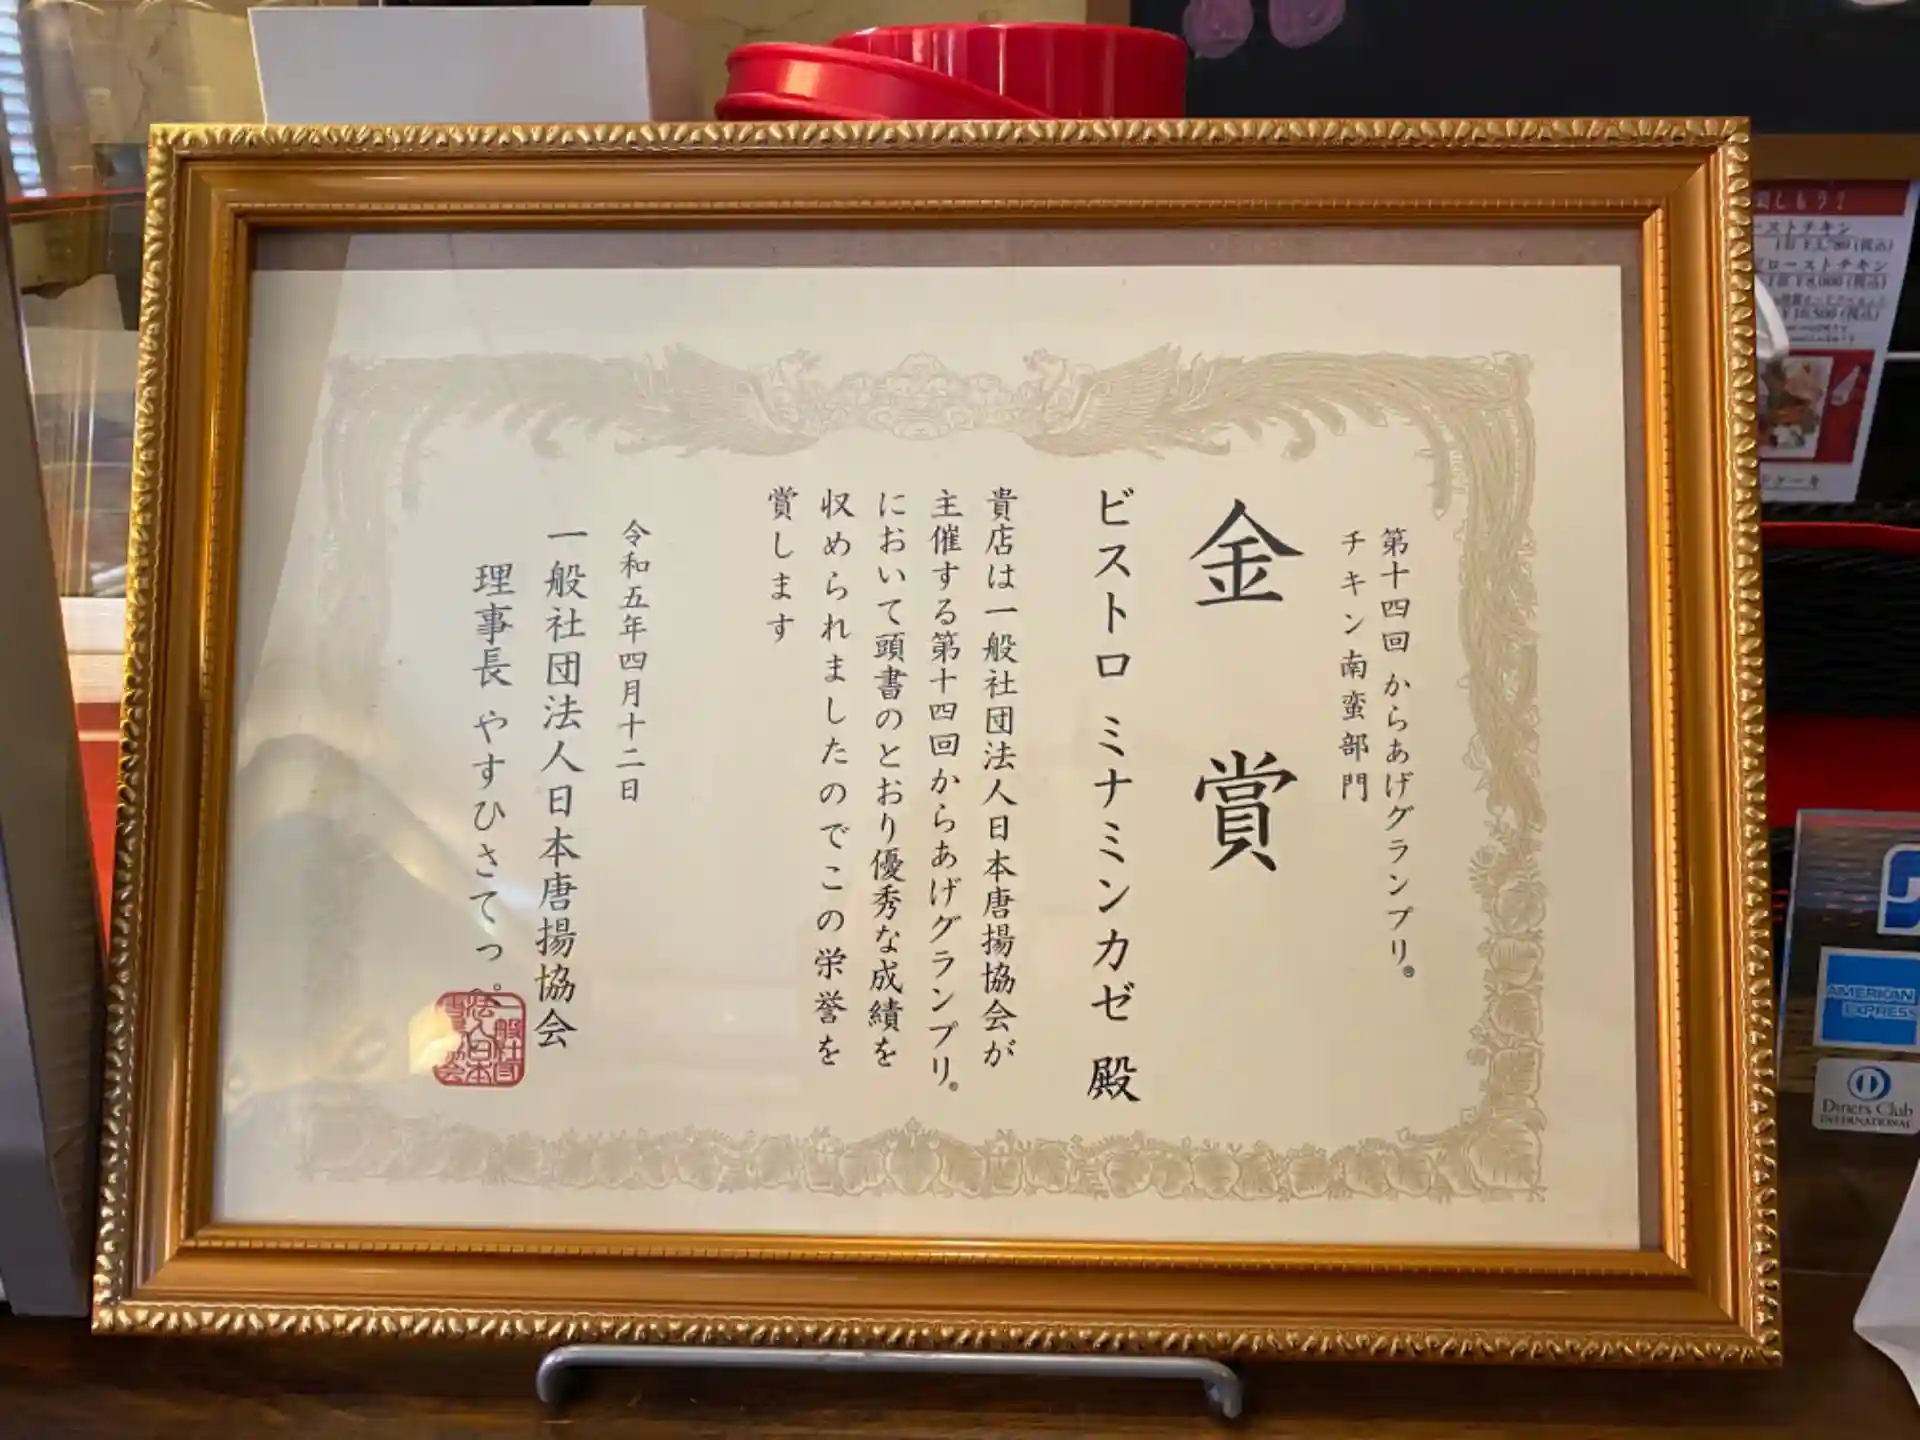 第十四回 からあげグランプリ®
チキン南蛮部門
金賞
ビストロ ミナミンカゼ 殿
貴店は一般社団法人日本唐揚協会が
主催する第十四回からあげグランプリ®
において頭書のとおり優秀な成績を
収められましたのでこの栄誉を
賞します
令和五年四月十二日
一般社団法人日本唐揚協会
理事長 やすひさてっぺい
ローストチキン
¥8,000(税込)
¥10,500(税込)
ケーキ
AMERICAN
EXPRESS
Diners Club
INTERNATIONAL